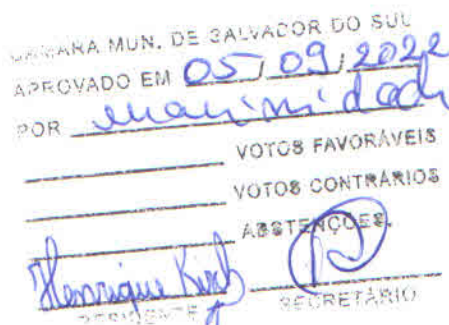 CÂMARA MUN. DE SALVADOR DO SUL
APROVADO EM 05 / 09 / 2022
POR unanimidade
VOTOS FAVORÁVEIS
VOTOS CONTRÁRIOS
ABSTENÇÕES.
Henrique Kirch
PRESIDENTE SECRETÁRIO